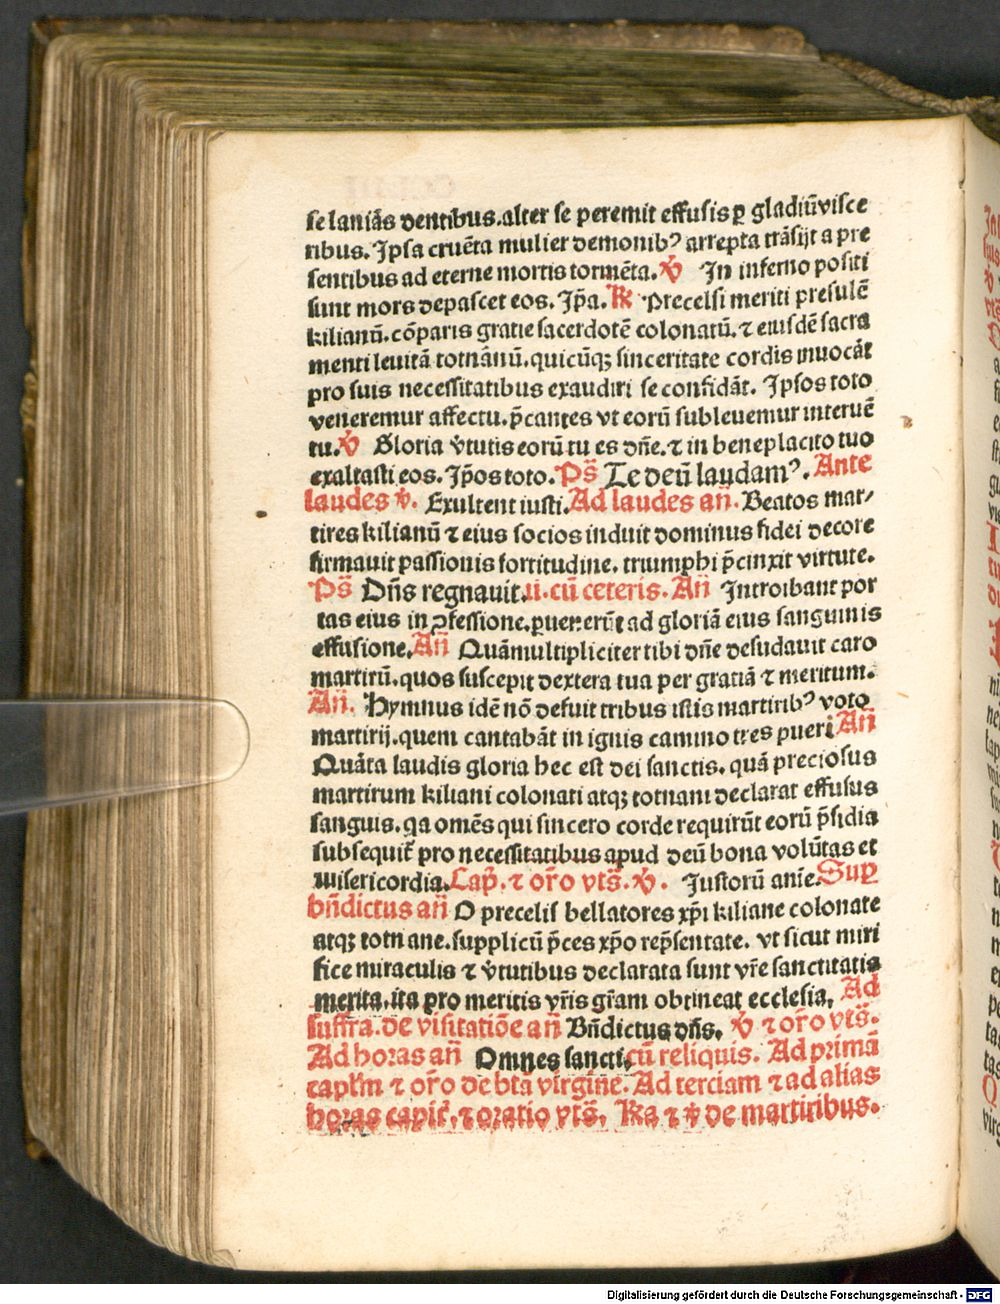 se laniãs dentibus.alter se peremit effusis ꝑ gladiũ visce
ribus. Ipsa cruẽta mulier demonibꝰ arrepta trãsijt a pre
sentibus ad eterne mortis tormẽta. ℣ In inferno positi
sunt mors depascet eos. Ip̃a. ℟ Precelsi meriti presulẽ
kilianũ. cõparis gratie sacerdotẽ colonatũ. ⁊ eiusdẽ sacra
menti leuitã totnãnũ. quicũqꝫ sinceritate cordis inuocãt
pro suis necessitatibus exaudiri se confidãt. Ipsos toto
veneremur affectu. p̃cantes vt eorũ subleuemur interuẽ
tu. ℣ Gloria v̓tutis eorũ tu es dñe. ⁊ in beneplacito tuo
exaltasti eos. Ip̃os toto. Ps̃ Te deũ laudamꝰ. Ante
laudes ℣. Exultent iusti. Ad laudes añ. Beatos mar⸗
tires kilianũ ⁊ eius socios induit dominus fidei decore
firmauit passionis fortitudine. triumphi p̃cinxit virtute.
Ps̃ Dñs regnauit. ii. cũ ceteris. Añ Introibant por
tas eius in ꝯfessione. ꝑuenerũt ad gloriã eius sanguinis
effusione. Añ Quãmultipliciter tibi dñe desudauit caro
martirũ. quos suscepit dextera tua per gratiã ⁊ meritum.
Añ. Hymnus idẽ nõ defuit tribus istis martiribꝰ voto
martirij. quem cantabãt in ignis camino tres pueri Añ
Quãta laudis gloria hec est dei sanctis. quã preciosus
martirum kiliani colonati atqꝫ totnani declarat effusus
sanguis. qa omẽs qui sincero corde requirũt eorũ p̃sidia
subsequit᷑ pro necessitatibus apud deũ bona volũtas et
misericordia. Cap̃. ⁊ or̃o vts̃. ℣. Iustorũ anĩe. Suꝑ
bñdictus añ O precelsi bellatores xp̃i kiliane colonate
atqꝫ totnane. supplicũ p̃ces xp̃o rep̃sentate. vt sicut miri
fice miraculis ⁊ v̓tutibus declarata sunt vr̃e sanctitatis
merita. ita pro meritis vr̃is gr̃am obtineat ecclesia. Ad
suffra. de visitatiõe añ Bñdictus dñs. ℣ ⁊ or̃o vts̃.
Ad horas añ Omnes sancti. cũ reliquis. Ad primã
capl̃m ⁊ or̃o de bt̃a virgine. Ad terciam ⁊ ad alias
horas capit̓. ⁊ oratio vts̃. Ra ⁊ ℣ de martiribus.
Digitalisierung gefördert durch die Deutsche Forschungsgemeinschaft - DFG